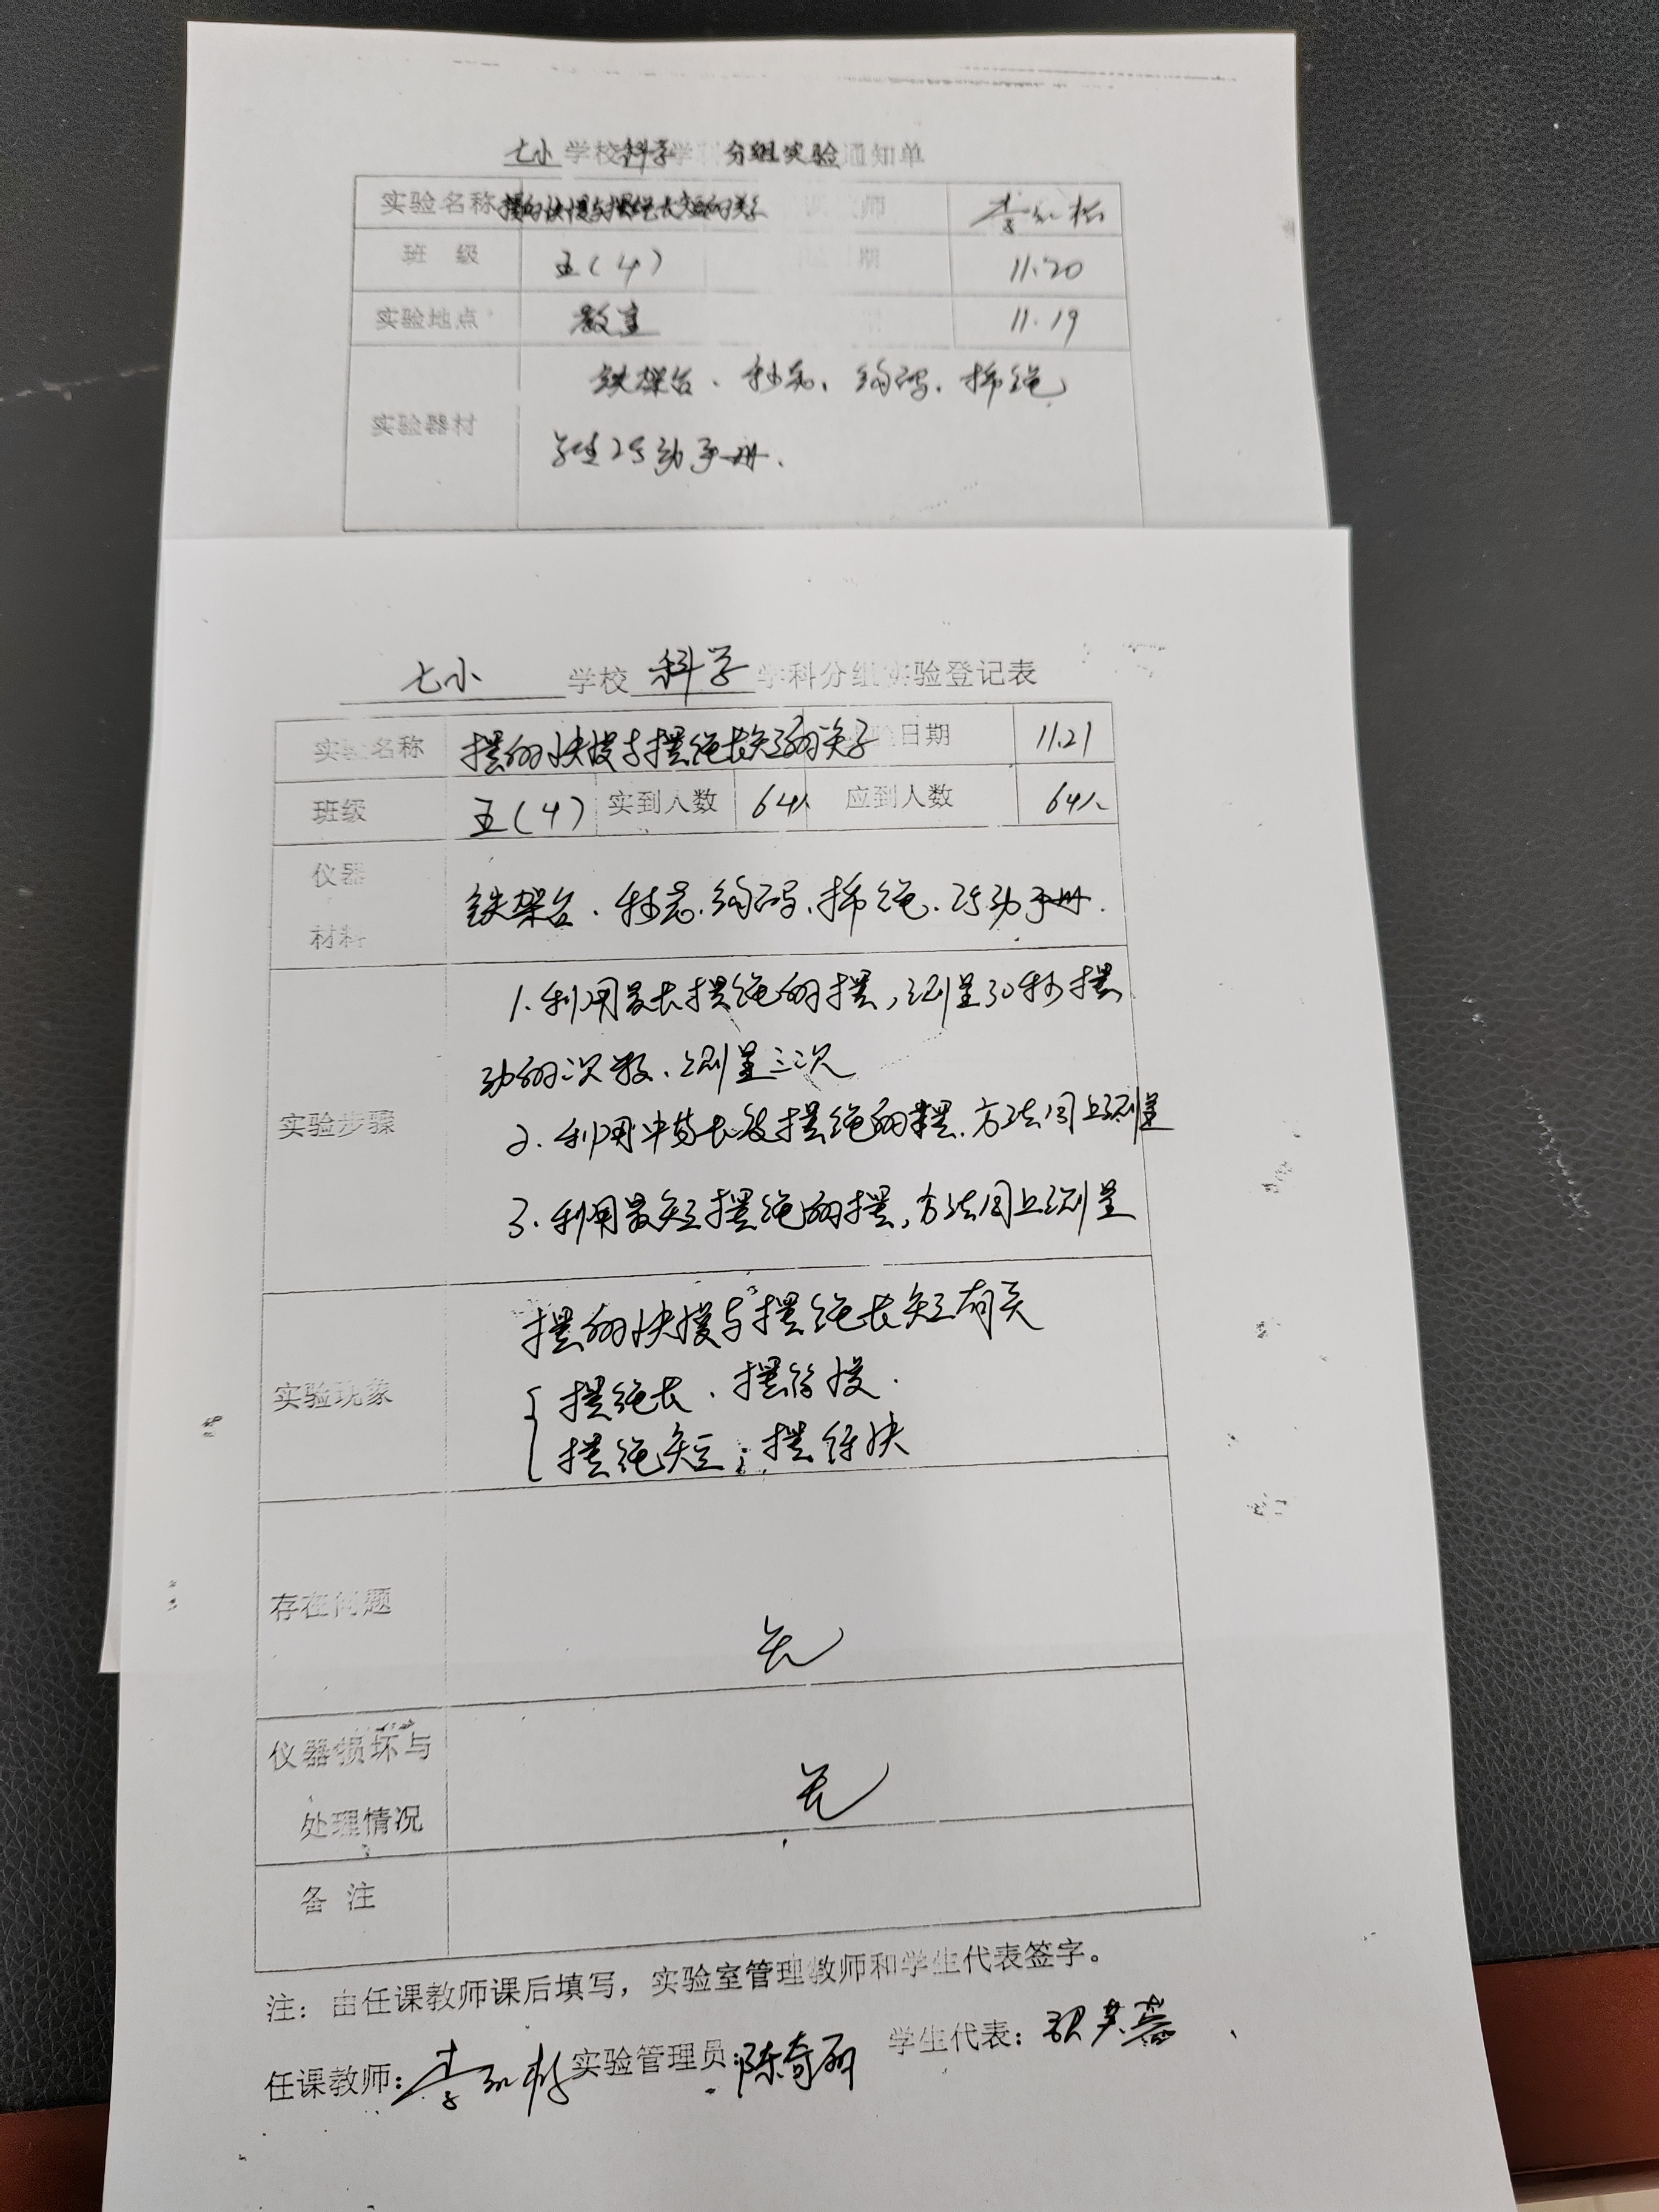 七小 学校 科学 学 分组实验 通知单
实验名称 摆的快慢与摆绳长短的关系 师
班 级 五(4) 期 11.20
实验地点 教室 11.19
铁架台、秒表、钩码、棉绳
实验器材
学生活动手册.
七小 学校 科学 学科分组实验登记表
实验名称 摆的快慢与摆绳长短的关系 日期 11.21
班级 五(4) 实到人数 64人 应到人数 64人
仪器
材料
铁架台、秒表、钩码、棉绳、活动手册.
1.利用最长摆绳的摆,测量30秒摆
动的次数、测量三次
实验步骤
2.利用中等长度摆绳的摆.方法同上测量
3.利用最短摆绳的摆,方法同上测量
摆的快慢与摆绳长短有关
实验现象
摆绳长、摆得慢.
摆绳短;摆得快
存在问题
无
仪器损坏与
处理情况
无
备 注
注：由任课教师课后填写，实验室管理教师和学生代表签字。
任课教师: 李 实验管理员: 陈奇丽 学生代表: